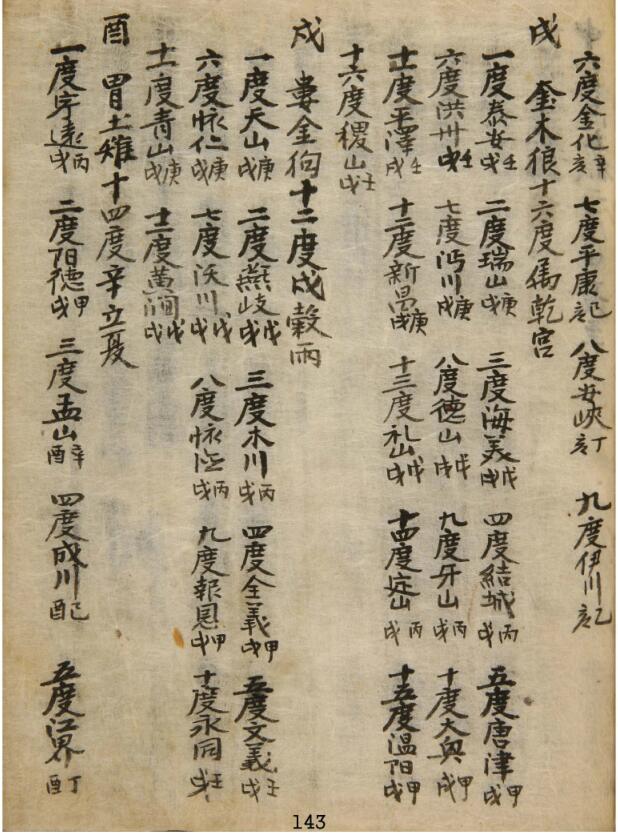 六度金化辛亥 七度平康己亥 八度安峽丁亥 九度伊川己亥
戌 奎木狼十六度属乾宮
一度泰安壬戌 二度瑞山庚戌 三度海美戊戌 四度結城丙戌 五度唐津甲戌
六度洪州壬戌 七度沔川庚戌 八度德山戊戌 九度牙山丙戌 十度大興甲戌
十一度平澤壬戌 十二度新昌庚戌 十三度礼山戊戌 十四度定山丙戌 十五度温阳甲戌
十六度稷山壬戌
戍 婁金狗十二度戌穀雨
一度天山庚戌 二度燕歧戊戌 三度木川丙戌 四度全義甲戌 五度文義壬戌
六度懷仁庚戌 七度沃川戊戌 八度懷德丙戌 九度報恩甲戌 十度永同壬戌
十一度青山庚戌 十二度黄澗戊戌
酉 胃土雉十四度辛立夏
一度寧遠丙戌 二度阳德甲戌 三度孟山辛酉 四度成川己酉 五度江界丁酉
143